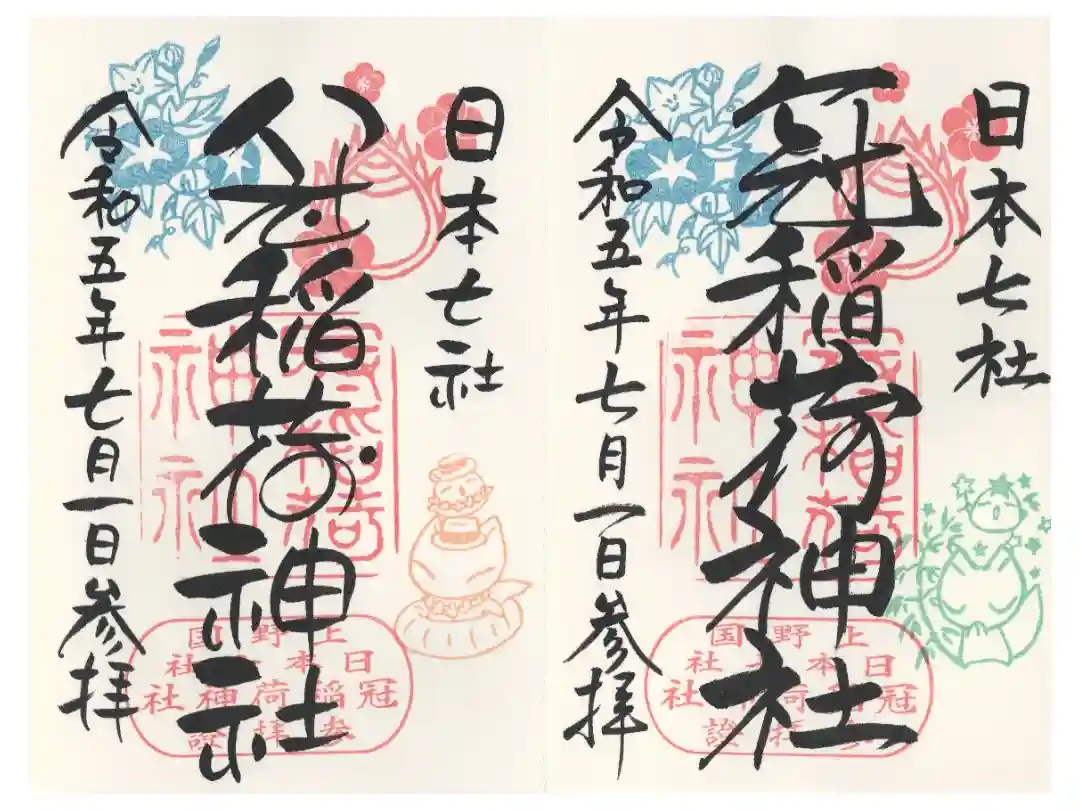 日本七社
冠稲荷神社
令和五年七月一日参拝
上野国
日本七社
冠稲荷神社
参拝證
日本七社
冠稲荷神社
令和五年七月一日参拝
上野国
日本七社
冠稲荷神社
参拝證